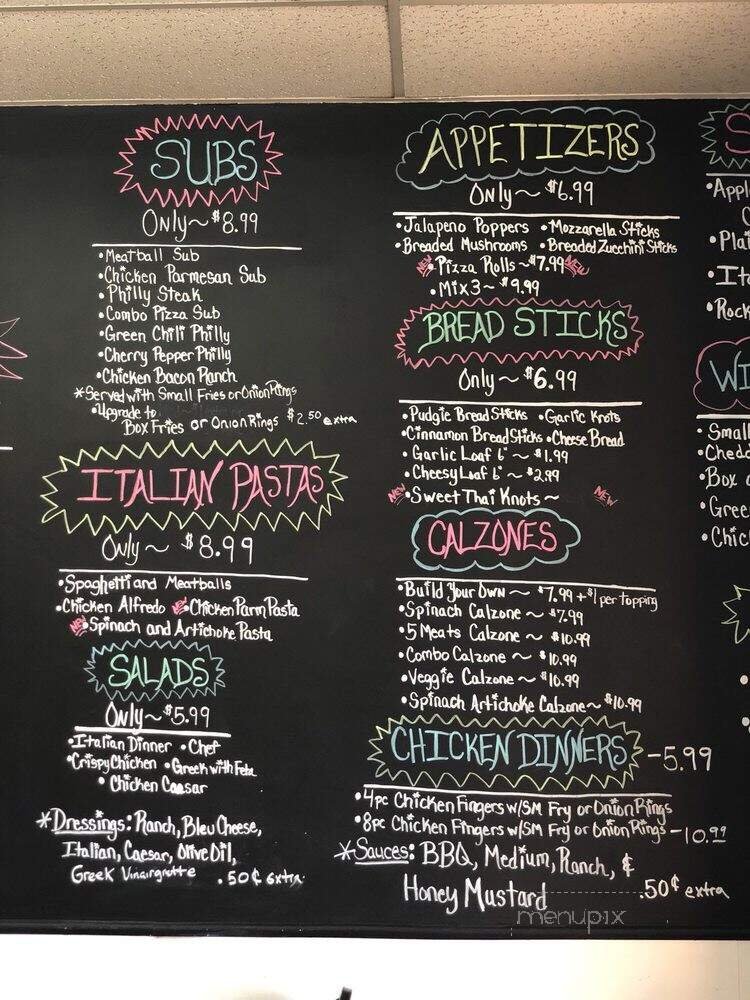 SUBS
Only~ $8.99
•Meatball Sub
•Chicken Parmesan Sub
•Philly Steak
•Combo Pizza Sub
•Green Chili Philly
•Cherry Pepper Philly
•Chicken Bacon Ranch
*Served with Small Fries or Onion Rings
•Upgrade to
Box Fries or Onion Rings $2.50 extra
ITALIAN PASTAS
Only~ $8.99
•Spaghetti and Meatballs
•Chicken Alfredo New •Chicken Parm Pasta
New •Spinach and Artichoke Pasta
SALADS
Only~ $5.99
•Italian Dinner •Chef
•Crispy Chicken •Greek with Feta
•Chicken Caesar
*Dressings: Ranch, Bleu Cheese,
Italian, Caesar, Olive Oil,
Greek Vinairgrette .50¢ extra
APPETIZERS
Only~ $6.99
•Jalapeno Poppers •Mozzarella Sticks
•Breaded Mushrooms •Breaded Zucchini Sticks
New •Pizza Rolls ~$7.99 New
•Mix 3~ $9.99
BREAD STICKS
Only~ $6.99
•Pudgie Bread Sticks •Garlic Knots
•Cinnamon Bread Sticks •Cheese Bread
•Garlic Loaf 6" ~ $1.99
•Cheesy Loaf 6" ~ $2.99
New •Sweet Thai Knots ~ New
CALZONES
•Build Your Own ~ $7.99 + $1 per topping
•Spinach Calzone ~ $7.99
•5 Meats Calzone ~ $10.99
•Combo Calzone ~ $10.99
•Veggie Calzone ~ $10.99
•Spinach Artichoke Calzone ~ $10.99
CHICKEN DINNERS -5.99
•4pc Chicken Fingers w/SM Fry or Onion Rings
•8pc Chicken Fingers w/SM Fry or Onion Rings -10.99
*Sauces: BBQ, Medium, Ranch, &
Honey Mustard .50¢ extra
S
•Appl
•Plai
•Ita
•Rock
WI
•Small
•Chedd
•Box o
•Gree
•Chic
menupix